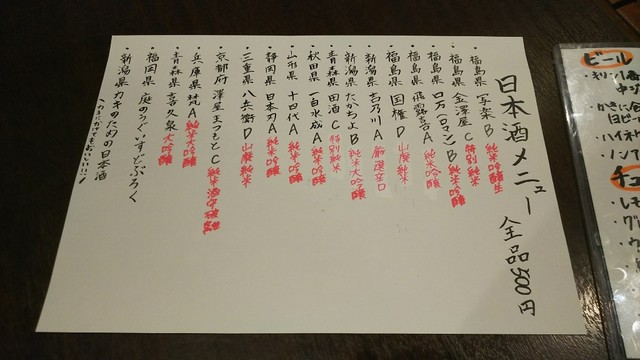 日本酒メニュー 全品500円
・福島県 写楽 B 純米吟醸生
・福島県 金澤屋 C 特別純米
・福島県 ロ万(ロマン) B 純米大吟醸
・福島県 飛露喜 A 純米吟醸
・福島県 国権 D 山廃純米
・新潟県 吉乃川 A 厳選辛口
・新潟県 たかちよ B 純米大吟醸
・青森県 田酒 C 特別純米
・秋田県 一白水成 A 純米吟醸
・山形県 十四代 A 純米吟醸
・静岡県 日本刃 A 純米吟醸
・三重県 八兵衛 D 山廃純米
・京都府 澤屋まつもと C 純米酒
・兵庫県 梵 A 純米大吟醸
・青森県 喜久泉 大吟醸
・福岡県 庭のうぐいすどぶろく
・新潟県 カキのための日本酒
ビール
・キリン
中ジ
・ハイネ
・ノンア
チュ
・レモ
・グレ
・ウ